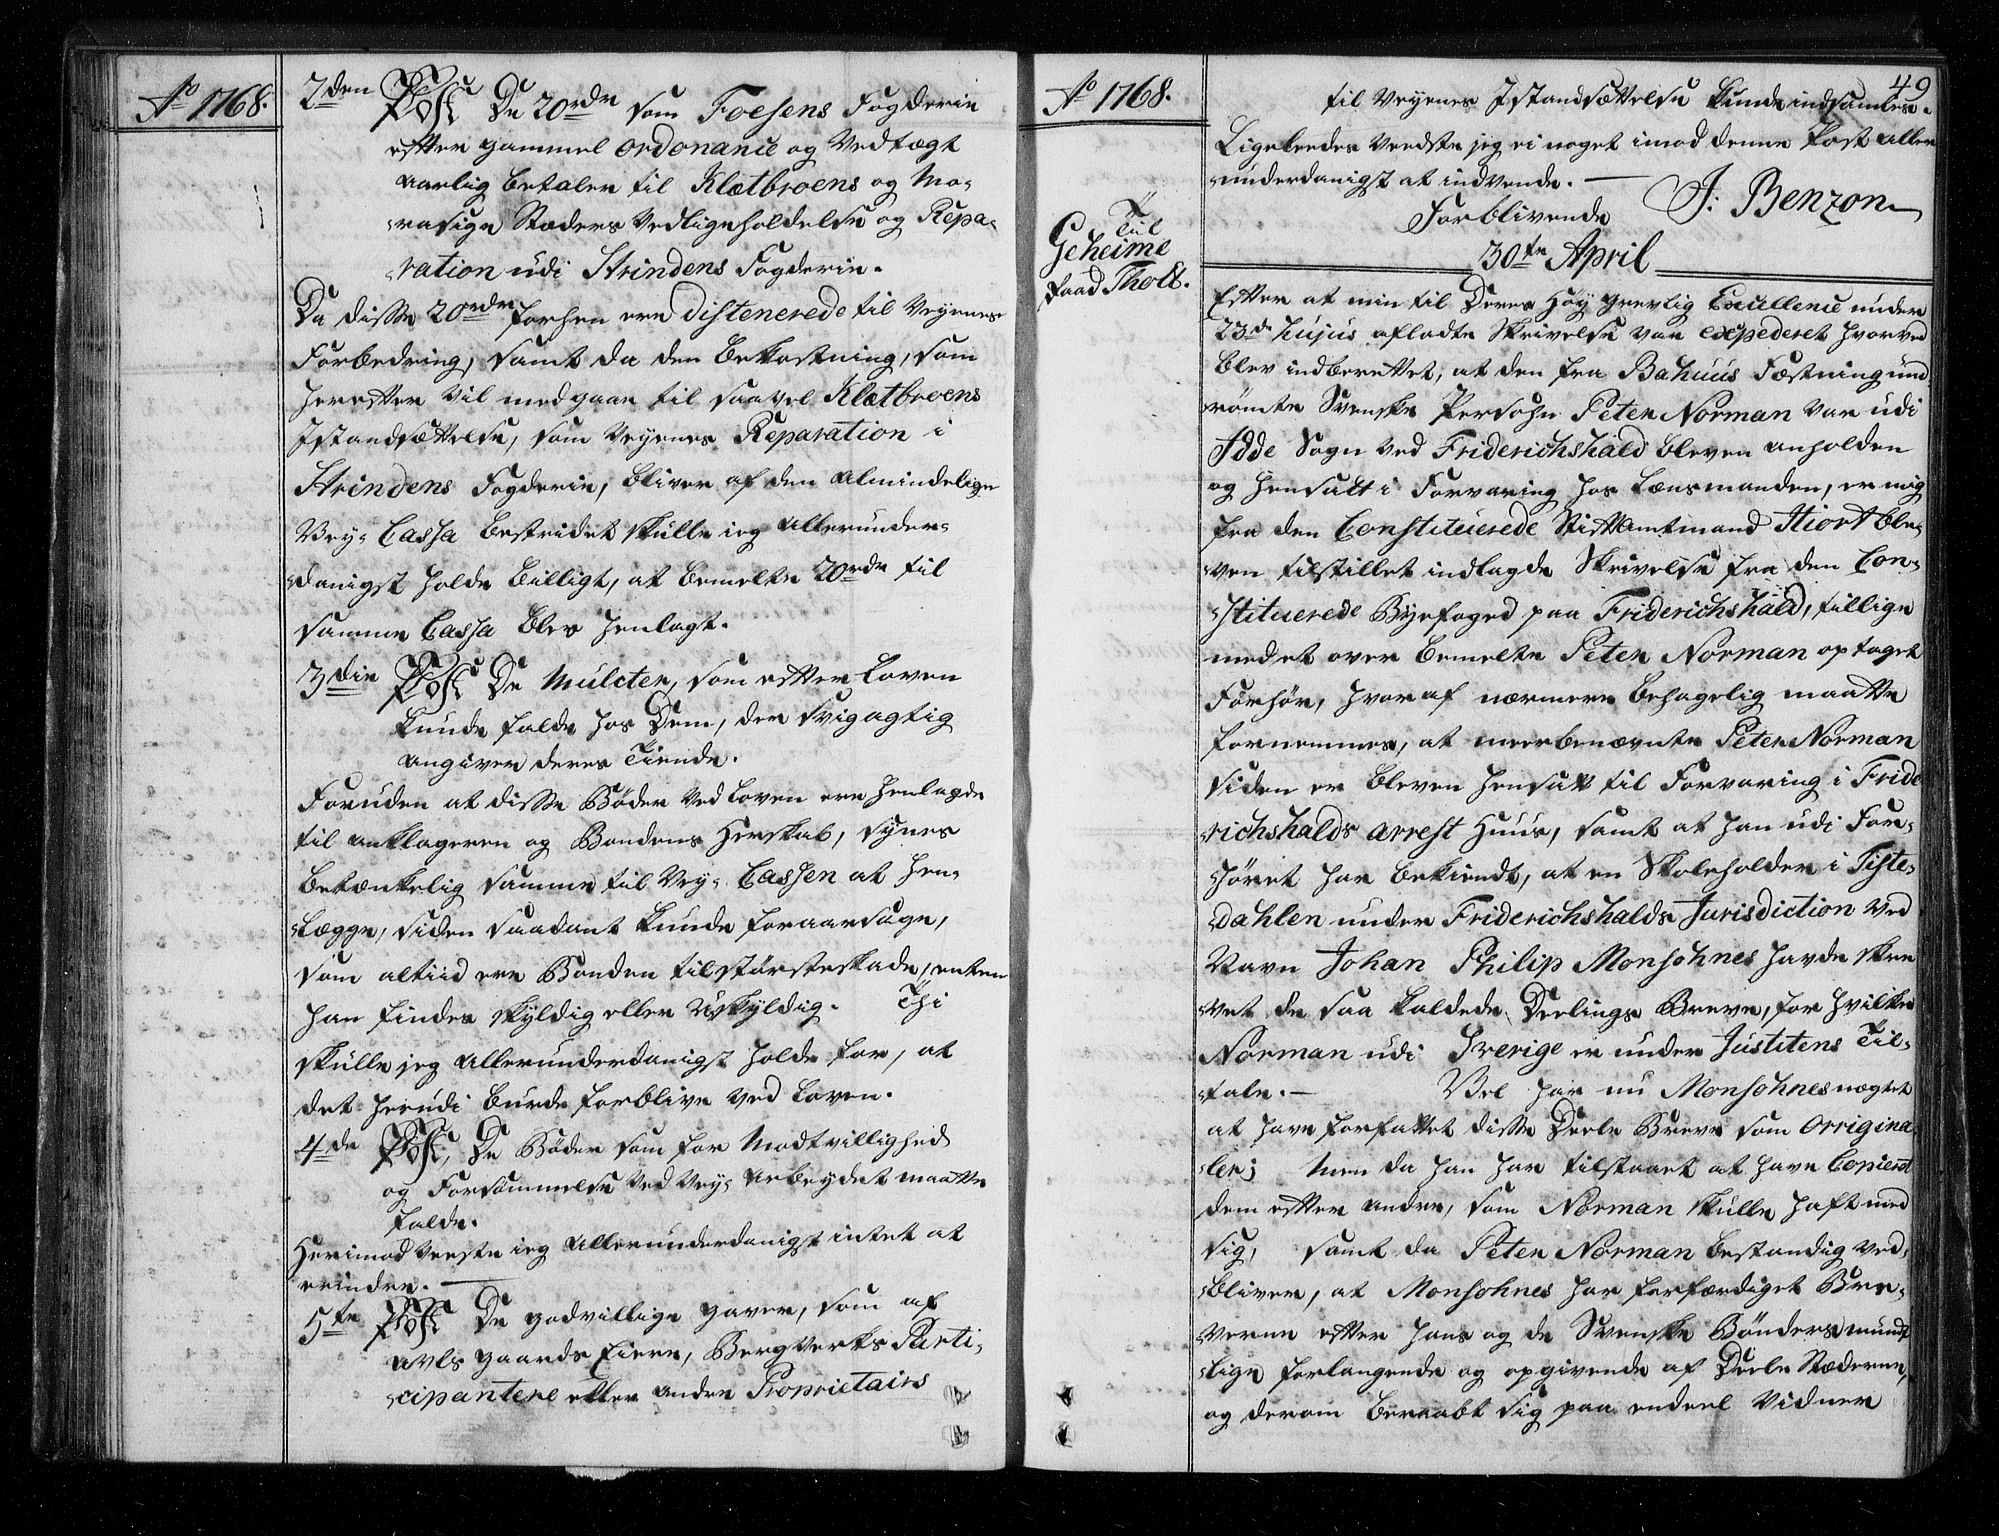 Ao 1768.
2den Post De 20rdr som Foesens Fogderie
efter gammel ordonance og Vedtægt
aarlig betaler til Klætbroens og Mo-
rasige Stæders Vedligeholdelse og Repa-
ration udi Strindens Fogderie.
Da disse 20rdr forhen ere distenerede til Veyenes
Forbedring, samt da den Bekostning, som
herefter vil medgaae til saavel Klætbroens
Istandsættelse, som Veyenes Reparation i
Strindens Fogderie, bliver af den Almindelige
Vey- Cassa bestridet skulle ieg allerunder-
danigst holde billigt, at bemelte 20rdr til
samme Cassa blev henlagt.
3die Post De Mulcter, som efter Loven
kunde falde hos Dem, der svigagtig
angiver deres Tiende.
Foruden at disse Bøder ved Loven ere henlagde
til anklageren og Bondens Herskab, synes
betænkelig samme til Vey- Cassen at hen-
lægge, siden saadant kunde foraarsage,
som altiid ere Bonden til største skade, enten
han findes skyldig eller uskyldig. Thi
skulle jeg allerunderdanigst holde for, at
det herudi burde forblive ved Loven.
4de Post, De Bøder som for Modtvillighed
og Forsømmelse ved Vey- Arbeydet maatte
falde.
Herimod veeste ieg allerunderdanigst intet at
erindre.
5te Post De godvillige gaver, som af
avls gaards Eiere, Bergverks Parti-
cipantere eller andre Proprietairs
Ao 1768.
49
til Veyenes Istandsættelse kunde indsamles.
Ligeledes veedste jeg ei noget imod denne Post aller
underdanigst at indvende.
Forblivende J: Benzon
30te April
Til
Geheime
Raad Thott.
Efter at min til Deres Høy grevlig Excellence under
23de hujus afladte Skrivelse var expederet hvorved
blev indberettet, at den fra Bahuus Fæstning und
rømte Svenske Persohn Peter Norman var udi
Idde Sogn ved Friderichshald bleven anholden
og hensatt i Forvaring hos Lænsmanden, er mig
fra den Constituerede Stiftamtmand Hiort ble-
ven tilstillet indlagde Skrivelse fra den Con-
stituerede Byefoged paa Friderichshald, tillige
med et over bemelte Peter Norman optaget
Forhør, hvoraf nærmere behagelig maatte
fornemmes, at meerbenævnte Peter Norman
siden er bleven hensatt til Forvaring i Fride
richshalds arrest Huus, samt at han udi For-
høret har bekiendt, at en Skoleholder i Tiste-
dahlen under Friderichshalds Jurisdiction ved
Navn Johan Philip Monsohnes havde skre
vet de saa kaldede Deelings Breve, for hvilke
Norman udi Sverige er under Justitens Til-
tale. Vel har nu Monsohnes nægtet
at have forfattet disse Deele Breve som Origina
ler; Men da han har tilstaaet at have Copieret
dem efter andre, som Norman skulle haft med
sig, samt da Peter Norman bestandig ved-
bliver, at Monsohnes har forfærdiget Bre-
vene efter hans og de Svenske Bønders mundt
lige forlangende og opgivende af Deele Stæderne,
og derom beraabt sig paa endeel Vidner